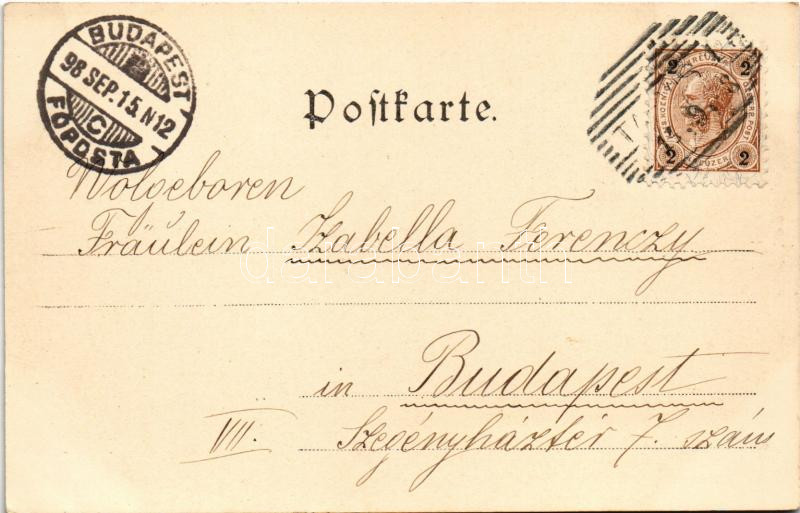 BUDAPEST
98 SEP. 15. N12
C
FŐPOSTA
Postkarte.
2 2
2 KREUZER 2
Wolgeboren
Fräulein Izabella Ferenczy
darabanth
in Budapest
VII. Szegényháztér 7. szám